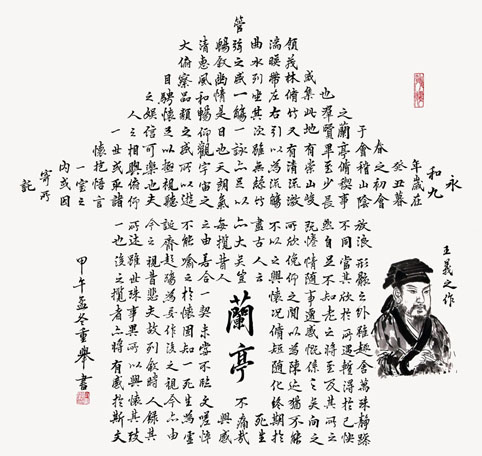 永
和九
年歲在
癸丑暮
春之初會
于會稽山陰
之蘭亭脩稧事
也羣賢畢至少長
咸集此地有崇山峻
領茂林脩竹又有清流激
湍暎帶左右引以為流觴
曲水列坐其次雖無絲竹
管弦之盛一觴一詠亦足以
暢敘幽情是日也天朗氣
清惠風和暢仰觀宇宙之
大俯察品類之盛所以遊
目騁懷足以極視聽
之娛信可樂也夫
人之相與俯仰
一世或取諸
懷抱悟言
一室之
內或因
寄所
託
放浪形骸之外雖趣舍萬殊靜躁
不同當其欣於所遇暫得於己快
然自足不知老之將至及其所之
既惓情隨事遷感慨係之矣向之
所欣俛仰之間以為陳迹猶不能
不以之興懷況脩短隨化終期於
盡古人云死生
亦大矣豈不痛哉
每攬昔人興感
蘭亭
之由若合一契未嘗不臨文嗟悼
不能喻之於懷固知一死生為虛
誕齊彭殤為妄作後之視今亦由
今之視昔悲夫故列敘時人錄其
所述雖世殊事異所以興懷其致
一也後之攬者亦將有感於斯文
甲午孟冬重舉書
王羲之作